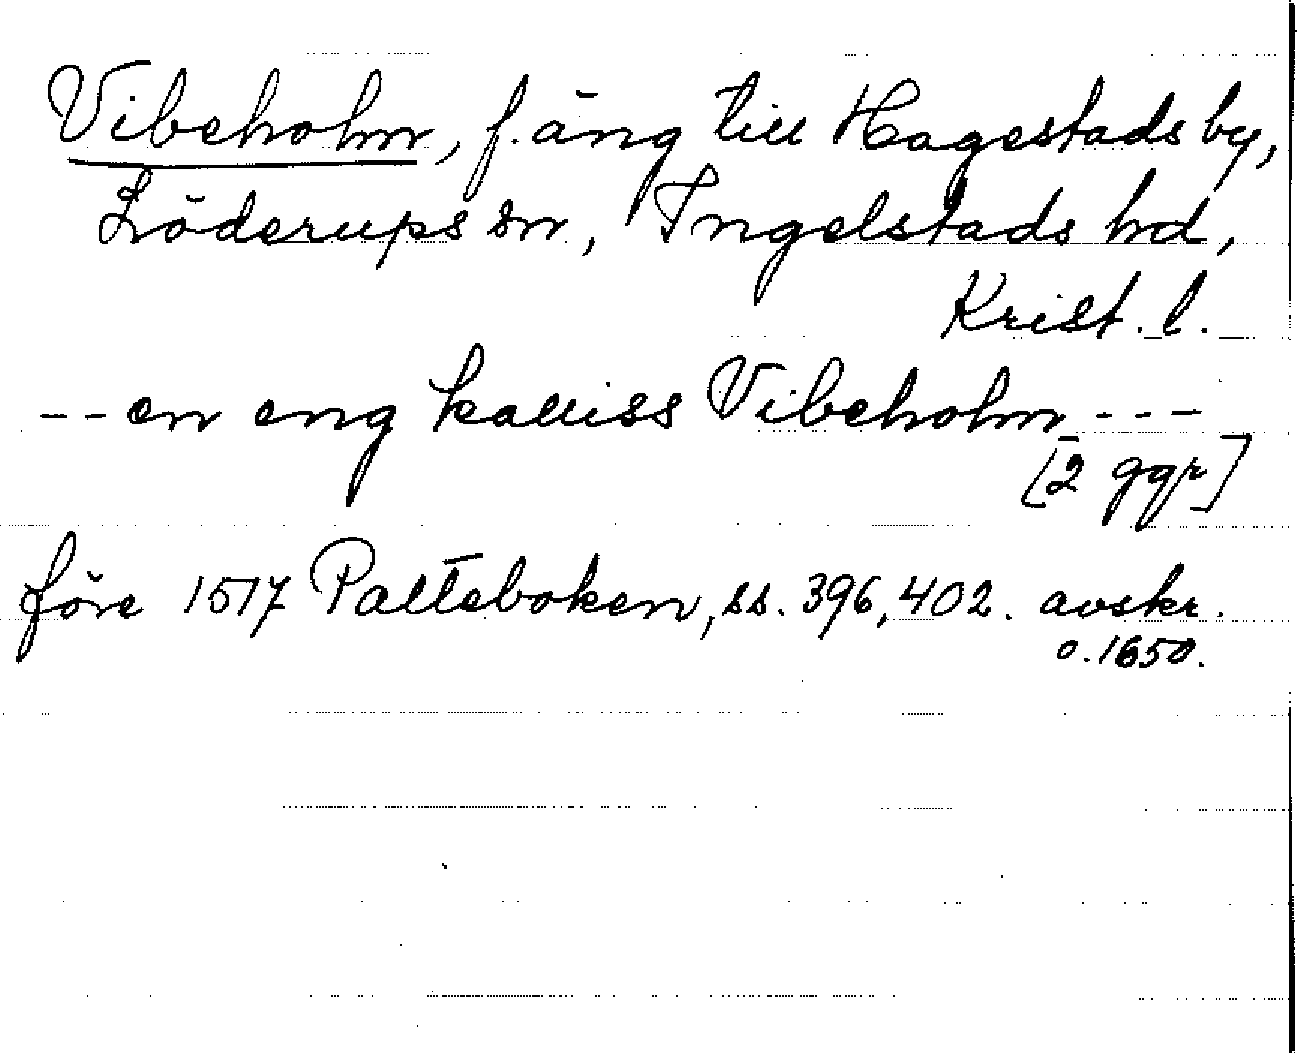 Vibeholm, f. äng till Hagestads by,
Löderups sn, Ingelstads hd,
Krist. l.
-- en eng kalliss Vibeholm ---
[2 ggr]
före 1517 Palteboken, ss. 396, 402. avskr.
o. 1650.